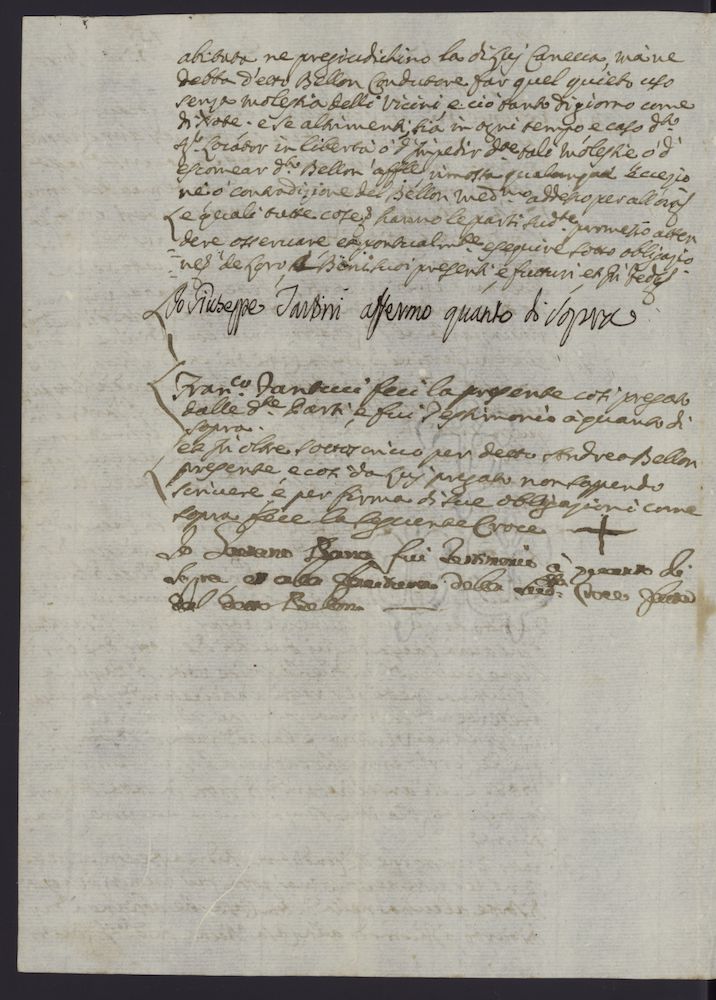 abitata ne pregiudichino la di lui Caneva, mà ne
debba detto Bellon Condutore far quel quieto uso
senza molestia delli Vicini, e ciò tanto di giorno come
di Note. e se altrimenti, sia in ogni tempo e caso d.to
S.r Locator in libertà ò d'impedir d.te tali molestie ò d'
escomear d.to Bellon affatto rimossa qualunque Eccezio
ne ò contradizione del Bellon med.mo adesso per all'ora
e quali tutte cose hanno le parti sud.te promesso atten
dere osservare et pontualm.te eseguire sotto obligazio
ne de loro Beni tuoi presenti e futuri et In Fede
Io Giuseppe Tartini affermo quanto di Sopra
Fran.co Fantucci feci la presente così pregato
dalle d.te Parti, e fui Testimonio à quanto di
sopra.
et In oltre sottoscrivo per detto Andrea Bellon
presente e così da lui pregato non sapendo
scrivere, è per ferma di sue obligazioni come
sopra fece la seguente Croce +
Io fui Testimonio à quanto di
Sopra et alla della Sud.ta Croce fatta
dal detto Bellon